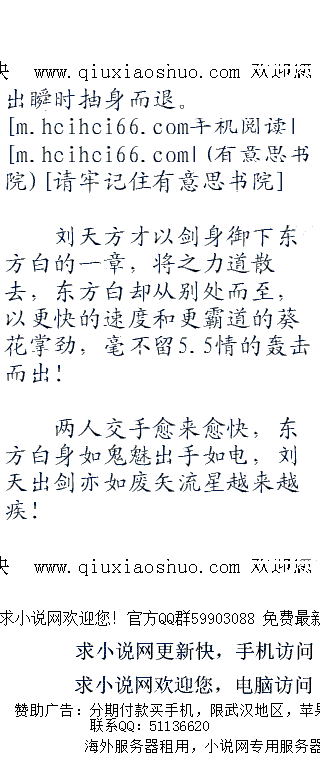 www.qiuxiaoshuo.com 欢迎您
出瞬时抽身而退。
[m.hcihci66.com手机阅读|
[m.hcihci66.com|(有意思书
院)[请牢记住有意思书院]
刘天方才以剑身御下东
方白的一章，将之力道散
去，东方白却从别处而至，
以更快的速度和更霸道的葵
花掌劲，毫不留5.5情的轰击
而出！
两人交手愈来愈快，东
方白身如鬼魅出手如电，刘
天出剑亦如废矢流星越来越
疾！
www.qiuxiaoshuo.com 欢迎您
求小说网欢迎您! 官方QQ群59903088 免费最新
求小说网更新快，手机访问
求小说网欢迎您，电脑访问
赞助广告：分期付款买手机，限武汉地区，苹果
联系QQ：51136620
海外服务器租用，小说网专用服务器